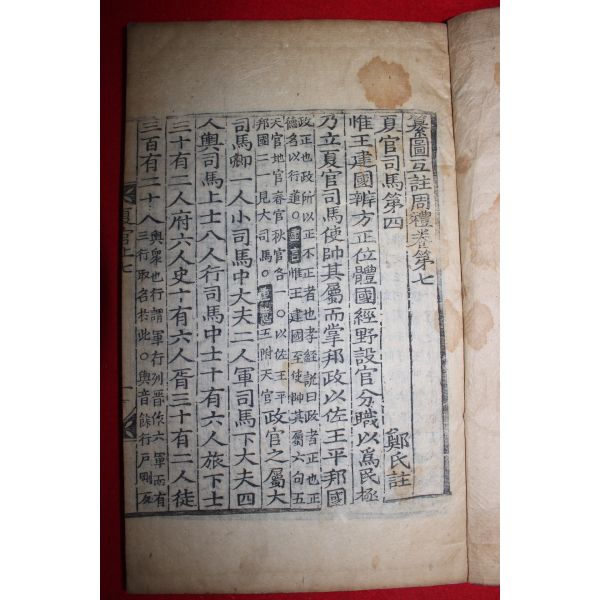 纂圖互註周禮卷第七
夏官司馬第四
鄭氏註
惟王建國辨方正位體國經野設官分職以爲民極
乃立夏官司馬使帥其屬而掌邦政以佐王平邦國
政正也政所以正不正者也孝經說曰政者正也正
德名以行道○重言惟王建國至使帥其屬六句五
天官地官春官秋官各一○以佐王平
邦國二一見大司馬○重意五附天官
政官之屬大
司馬卿一人小司馬中大夫二人軍司馬下大夫四
人輿司馬上士八人行司馬中士十有六人旅下士
三十有二人府六人史十有六人胥三十有二人徒
三百有二十人
輿衆也行謂軍行列晉作六軍而有
三行取名於此○輿音餘行戶剛反
夏官七